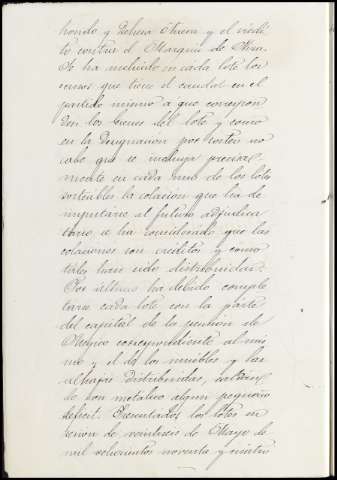 hondo y Dehesa Nueva y el crédi
to contra el Marqués de
Se ha incluido en cada lote los
censos que tiene el caudal en el
partido mismo a que correspon
den los bienes del lote y como
en la designación por sorteo no
cabe que se incluya precisa
mente en cada uno de los lotes
sorteables la colación que ha de
imputarse al futuro adjudica
tario se ha considerado que las
colaciones son créditos y como
tales han sido distribuidas.
Por último ha debido comple
tarse cada lote con la parte
del capital de la pensión de
correspondiente al mis
mo y el de los muebles y las
alhajas distribuidas, saldan
do con metálico algun pequeño
deficit. Presentados los lotes en
sesion de veintiseis de Mayo de
mil ochocientos noventa y cuatro